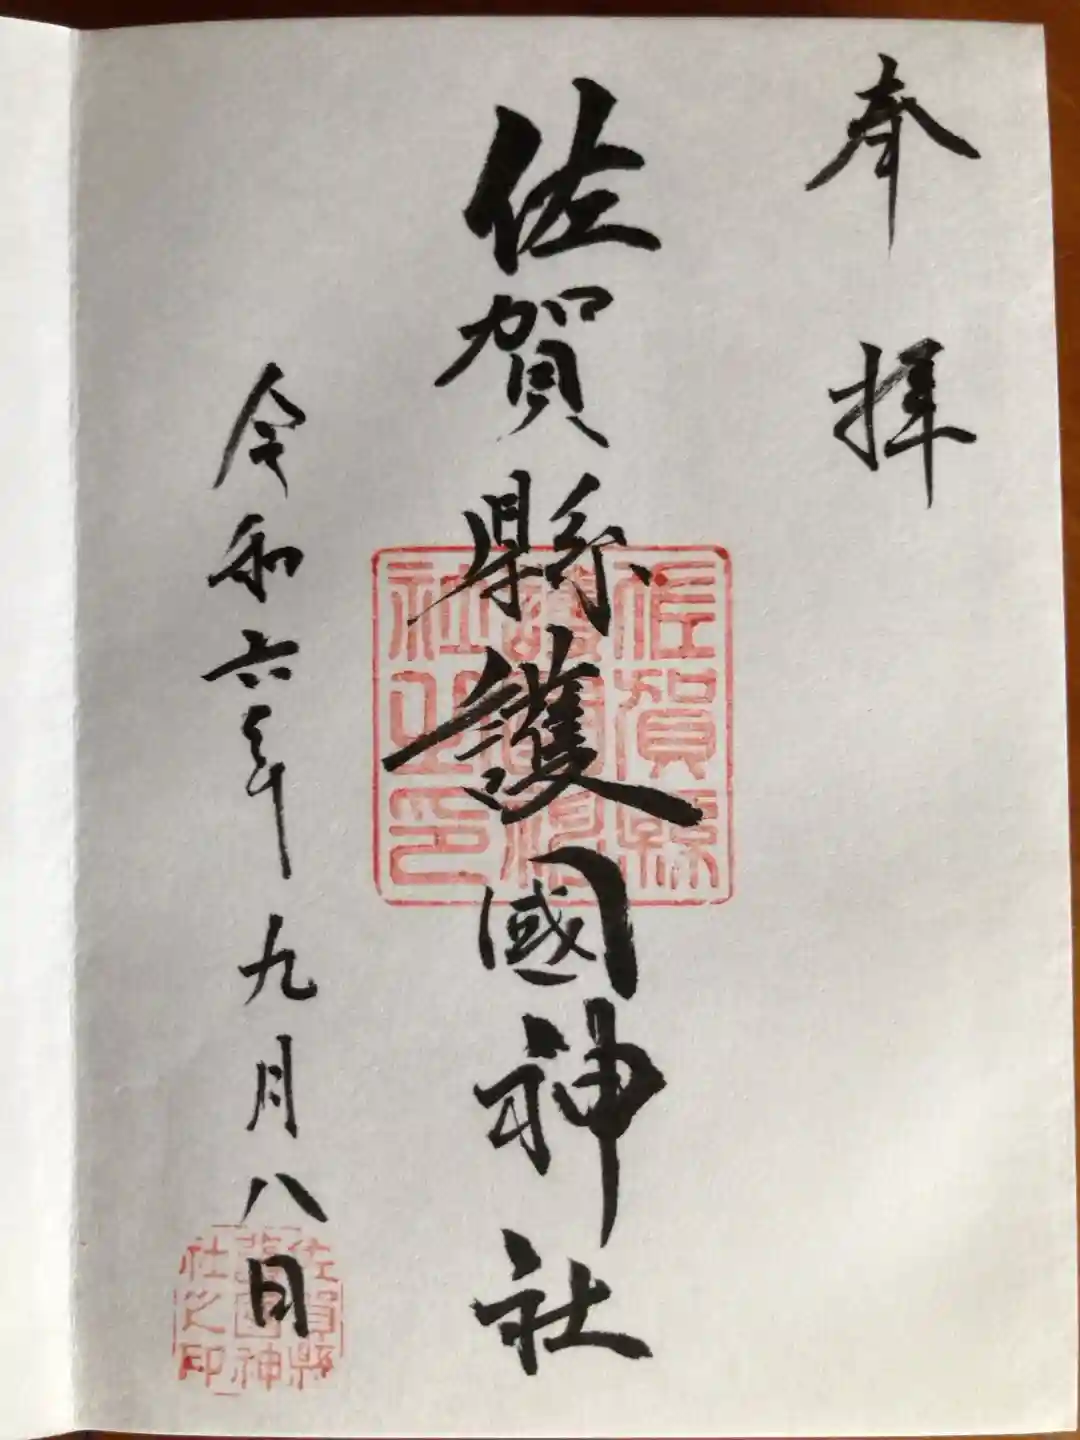 奉拝
佐賀縣護國神社
佐賀縣
護國神
社之印
令和六年九月八日
佐賀縣
護國神
社之印